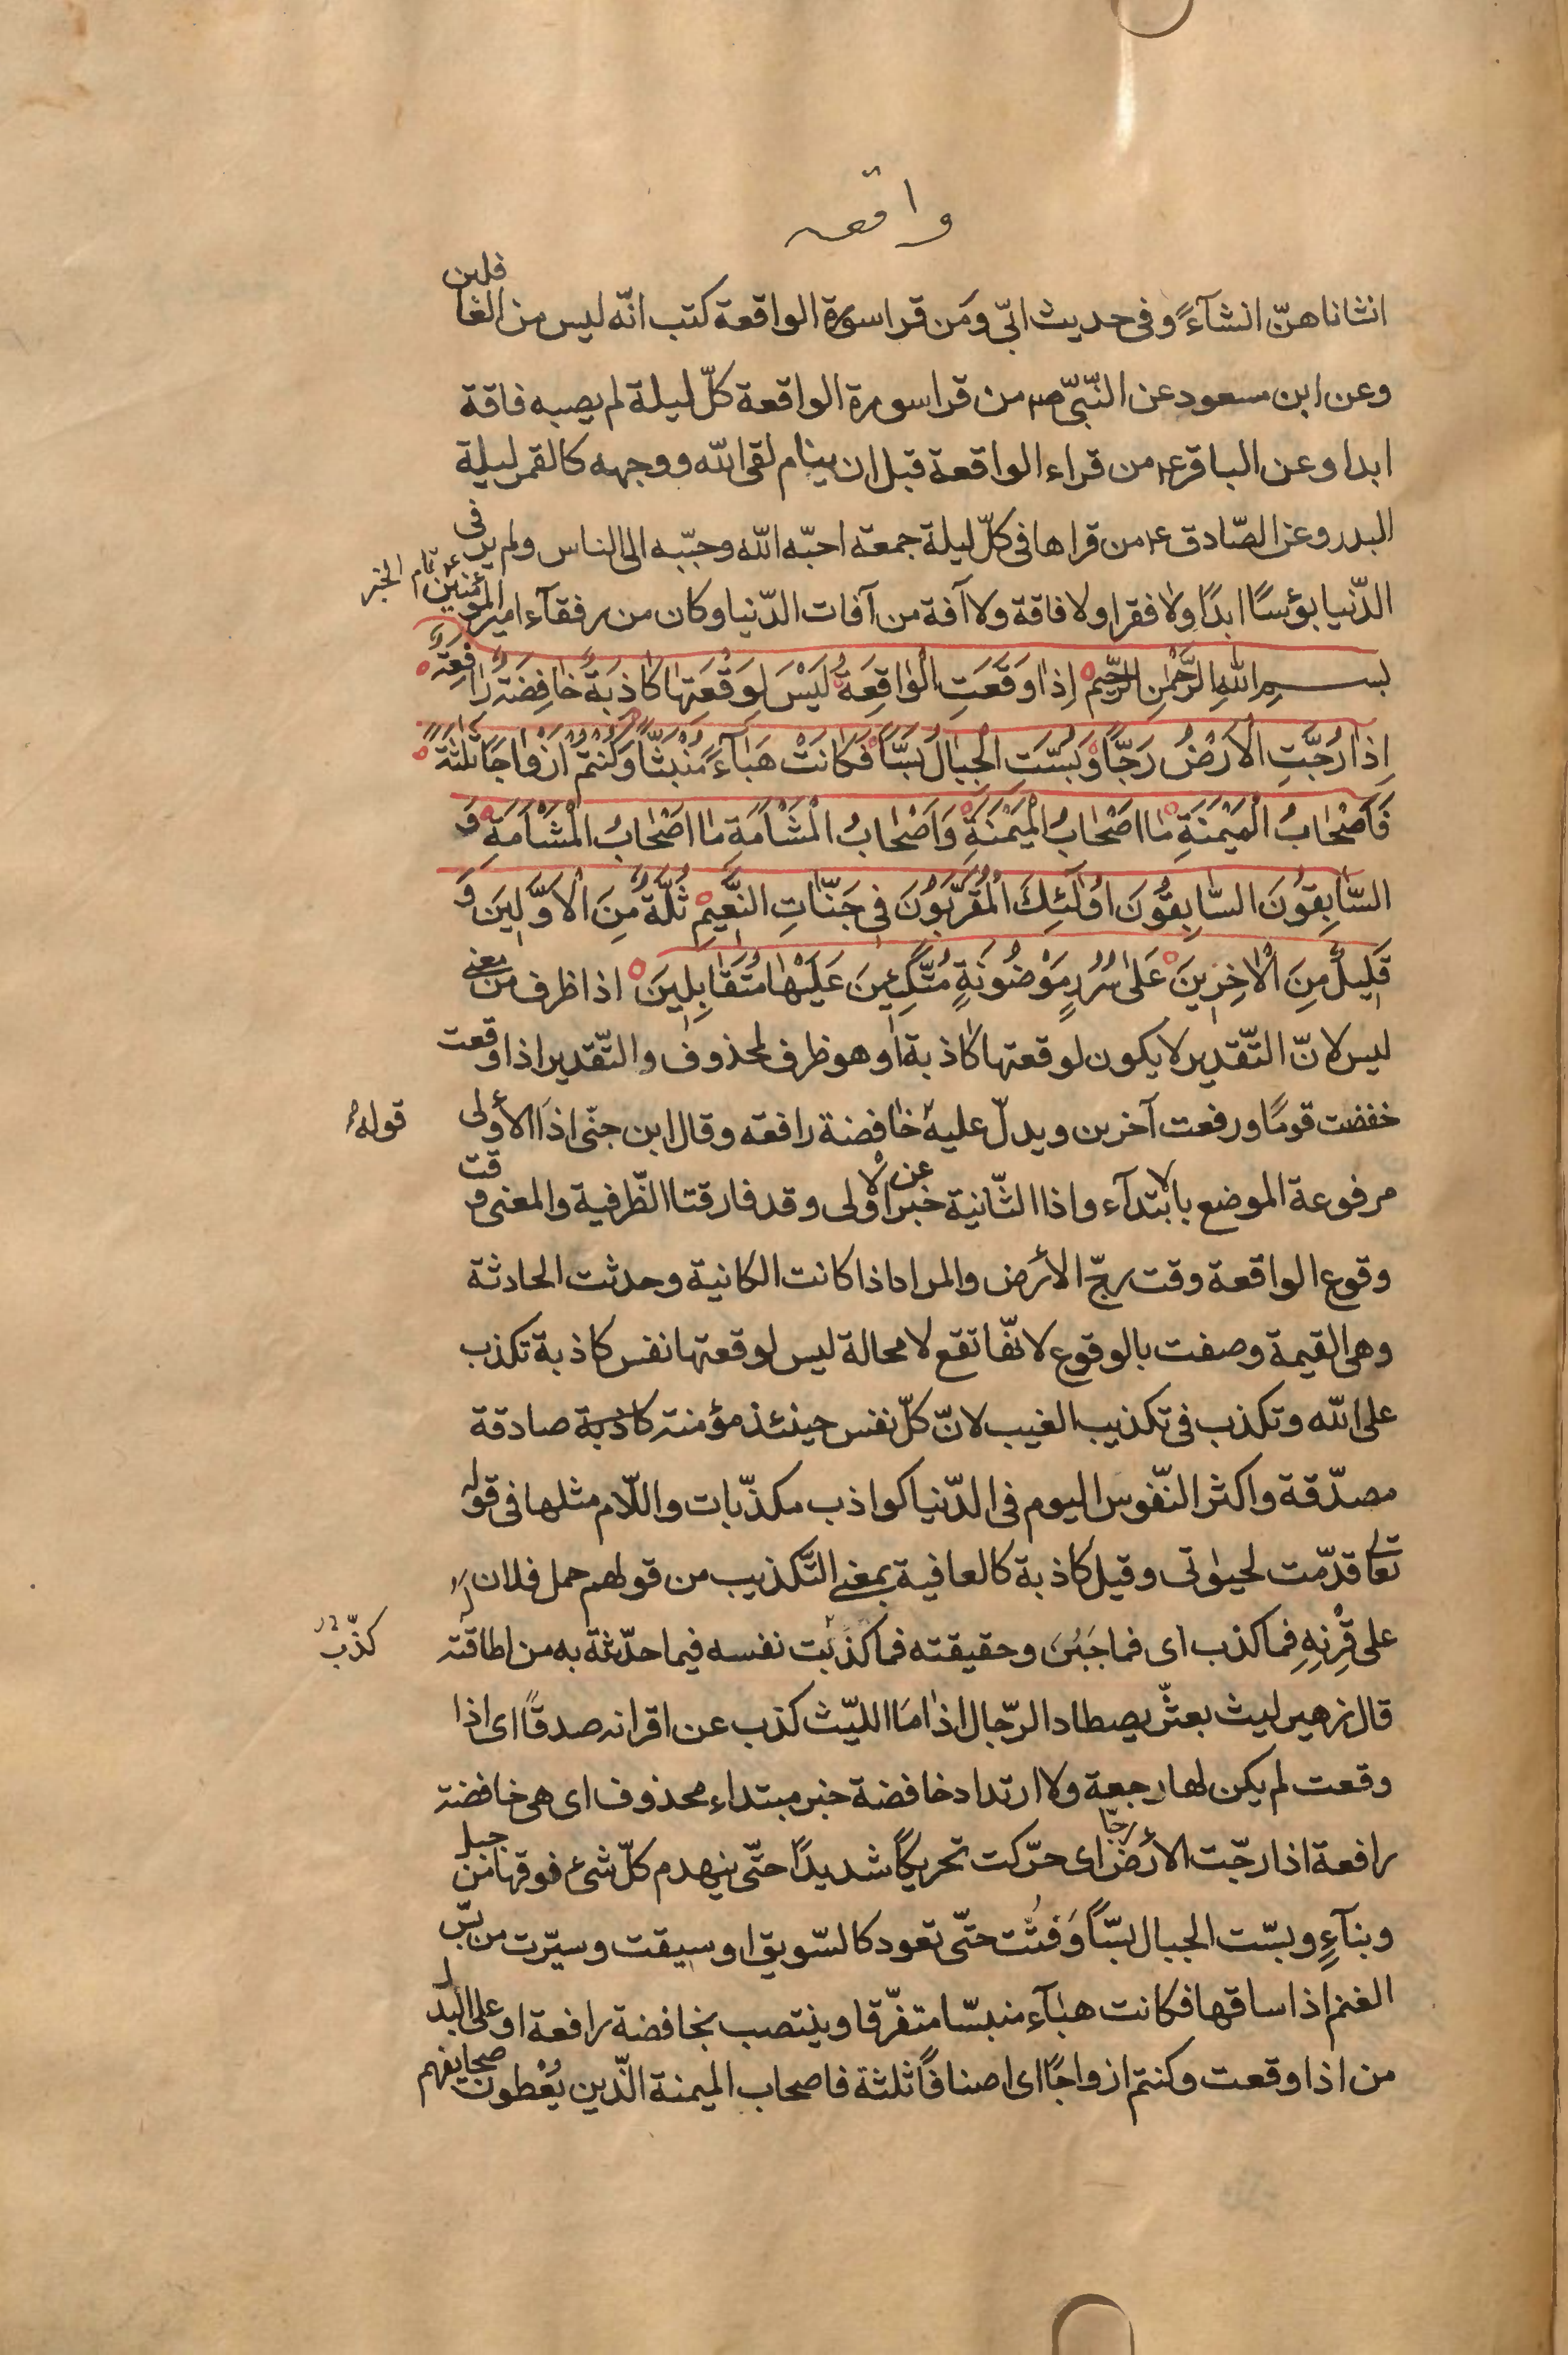 واقعه
انشاناهنّ انشآءً وفى حديث ابىّ ومَن قرا سورة الواقعة كتب انّه ليس من الغافلين
وعن ابن مسعود عن النّبىّ ص من قرا سورة الواقعة كلّ ليلة لم يصبه فاقة
ابدا وعن الباقر ع من قراء الواقعة قبل ان ينام لقى اللّه ووجهه كالقمر ليلة
البدر وعن الصّادق ع من قراها فى كلّ ليلة جمعة احبّه اللّه وحبّبه الى الناس ولم ير فى
الدّنيا بؤسًا ابدًا ولا فقرا ولا فاقة ولا آفة من آفات الدّنيا وكان من رفقآء امير المؤمنين ع تمام الخبر
بسم اللّهِ الرَّحْمٰنِ الرَّحِيمِ اِذٰا وَقَعَتِ الْوٰاقِعَةُ لَيْسَ لِوَقْعَتِهٰا كٰاذِبَةٌ خٰافِضَةٌ رٰافِعَةٌ
اِذٰا رُجَّتِ الْاَرْضُ رَجًّا وَبُسَّتِ الْجِبٰالُ بَسًّا فَكٰانَتْ هَبٰآءً مُنْبَثًّا وَكُنْتُمْ اَزْوٰاجًا ثَلٰثَةً
فَاَصْحٰابُ الْمَيْمَنَةِ مٰا اَصْحٰابُ الْمَيْمَنَةِ وَاَصْحٰابُ الْمَشْاَمَةِ مٰا اَصْحٰابُ الْمَشْاَمَةِ وَ
السّٰابِقُونَ السّٰابِقُونَ اُولٰئِكَ الْمُقَرَّبُونَ فى جَنّٰاتِ النَّعِيمِ ثُلَّةٌ مِنَ الْاَوَّلِينَ وَ
قَلِيلٌ مِنَ الْاٰخِرِينَ عَلٰى سُرُرٍ مَوْضُونَةٍ مُتَّكِئِينَ عَلَيْهٰا مُتَقٰابِلِينَ اذا ظرف من معنى
ليس لانّ التّقدير لا يكون لوقعتها كاذبة او هو ظرف لمحذوف والتّقدير اذا وقعت
خفضت قومًا ورفعت آخرين ويدلّ عليه خافضة رافعه وقال ابن جنّى اذا الأولى
قوله
مرفوعة الموضع بالابتدآء واذا الثّانية خبر عن الاولى وقد فارقتا الظّرفية والمعنى وقت
وقوع الواقعة وقت رجّ الأرض والمراد اذا كانت الكانية وحدثت الحادثة
وهى القيمة وصفت بالوقوع لانّها تقع لا محالة ليس لوقعتها نفس كاذبة تكذب
على اللّه وتكذب فى تكذيب الغيب لانّ كلّ نفس حينئذ مؤمنة كاذبة صادقة
مصدّقة واكثر النّفوس اليوم فى الدّنيا كواذب مكذّبات واللّام مثلها فى قوله
تعالى قدّمت لحيوٰتى وقيل كاذبة كالعافية بمعنى التّكذيب من قولهم حمل فلان
على قِرْنِهِ فما كذب اى فما جَبُنَ وحقيقته فما كذّبت نفسه فيما حدّثة به من اطاقته
كذّب
قال زهير ليث بعثّر يصطاد الرّجال اذا مَا اللّيث كذب عن اقرانه صدقًا اى اذا
وقعت لم يكن لها رجعة ولا ارتداد خافضة خبر مبتداء محذوف اى هى خافضة
رافعة اذا رجّت الأرض رجّا اى حرّكت تحريكًا شديدًا حتّى ينهدم كلّ شئ فوقها من جبل
وبنآءٍ وبسّت الجبال بسًّا وَفتّت حتّى تعود كالسّويق او سيقت وسيّرت من بسّ
الغنم اذا ساقها فكانت هبآء منبسّا متفّرقا وينتصب بخافضة رافعة او على البدل
من اذا وقعت وكنتم ازواجًا اى اصنافًا ثلثة فاصحاب الميمنة الّذين يُعْطون صحايفهم